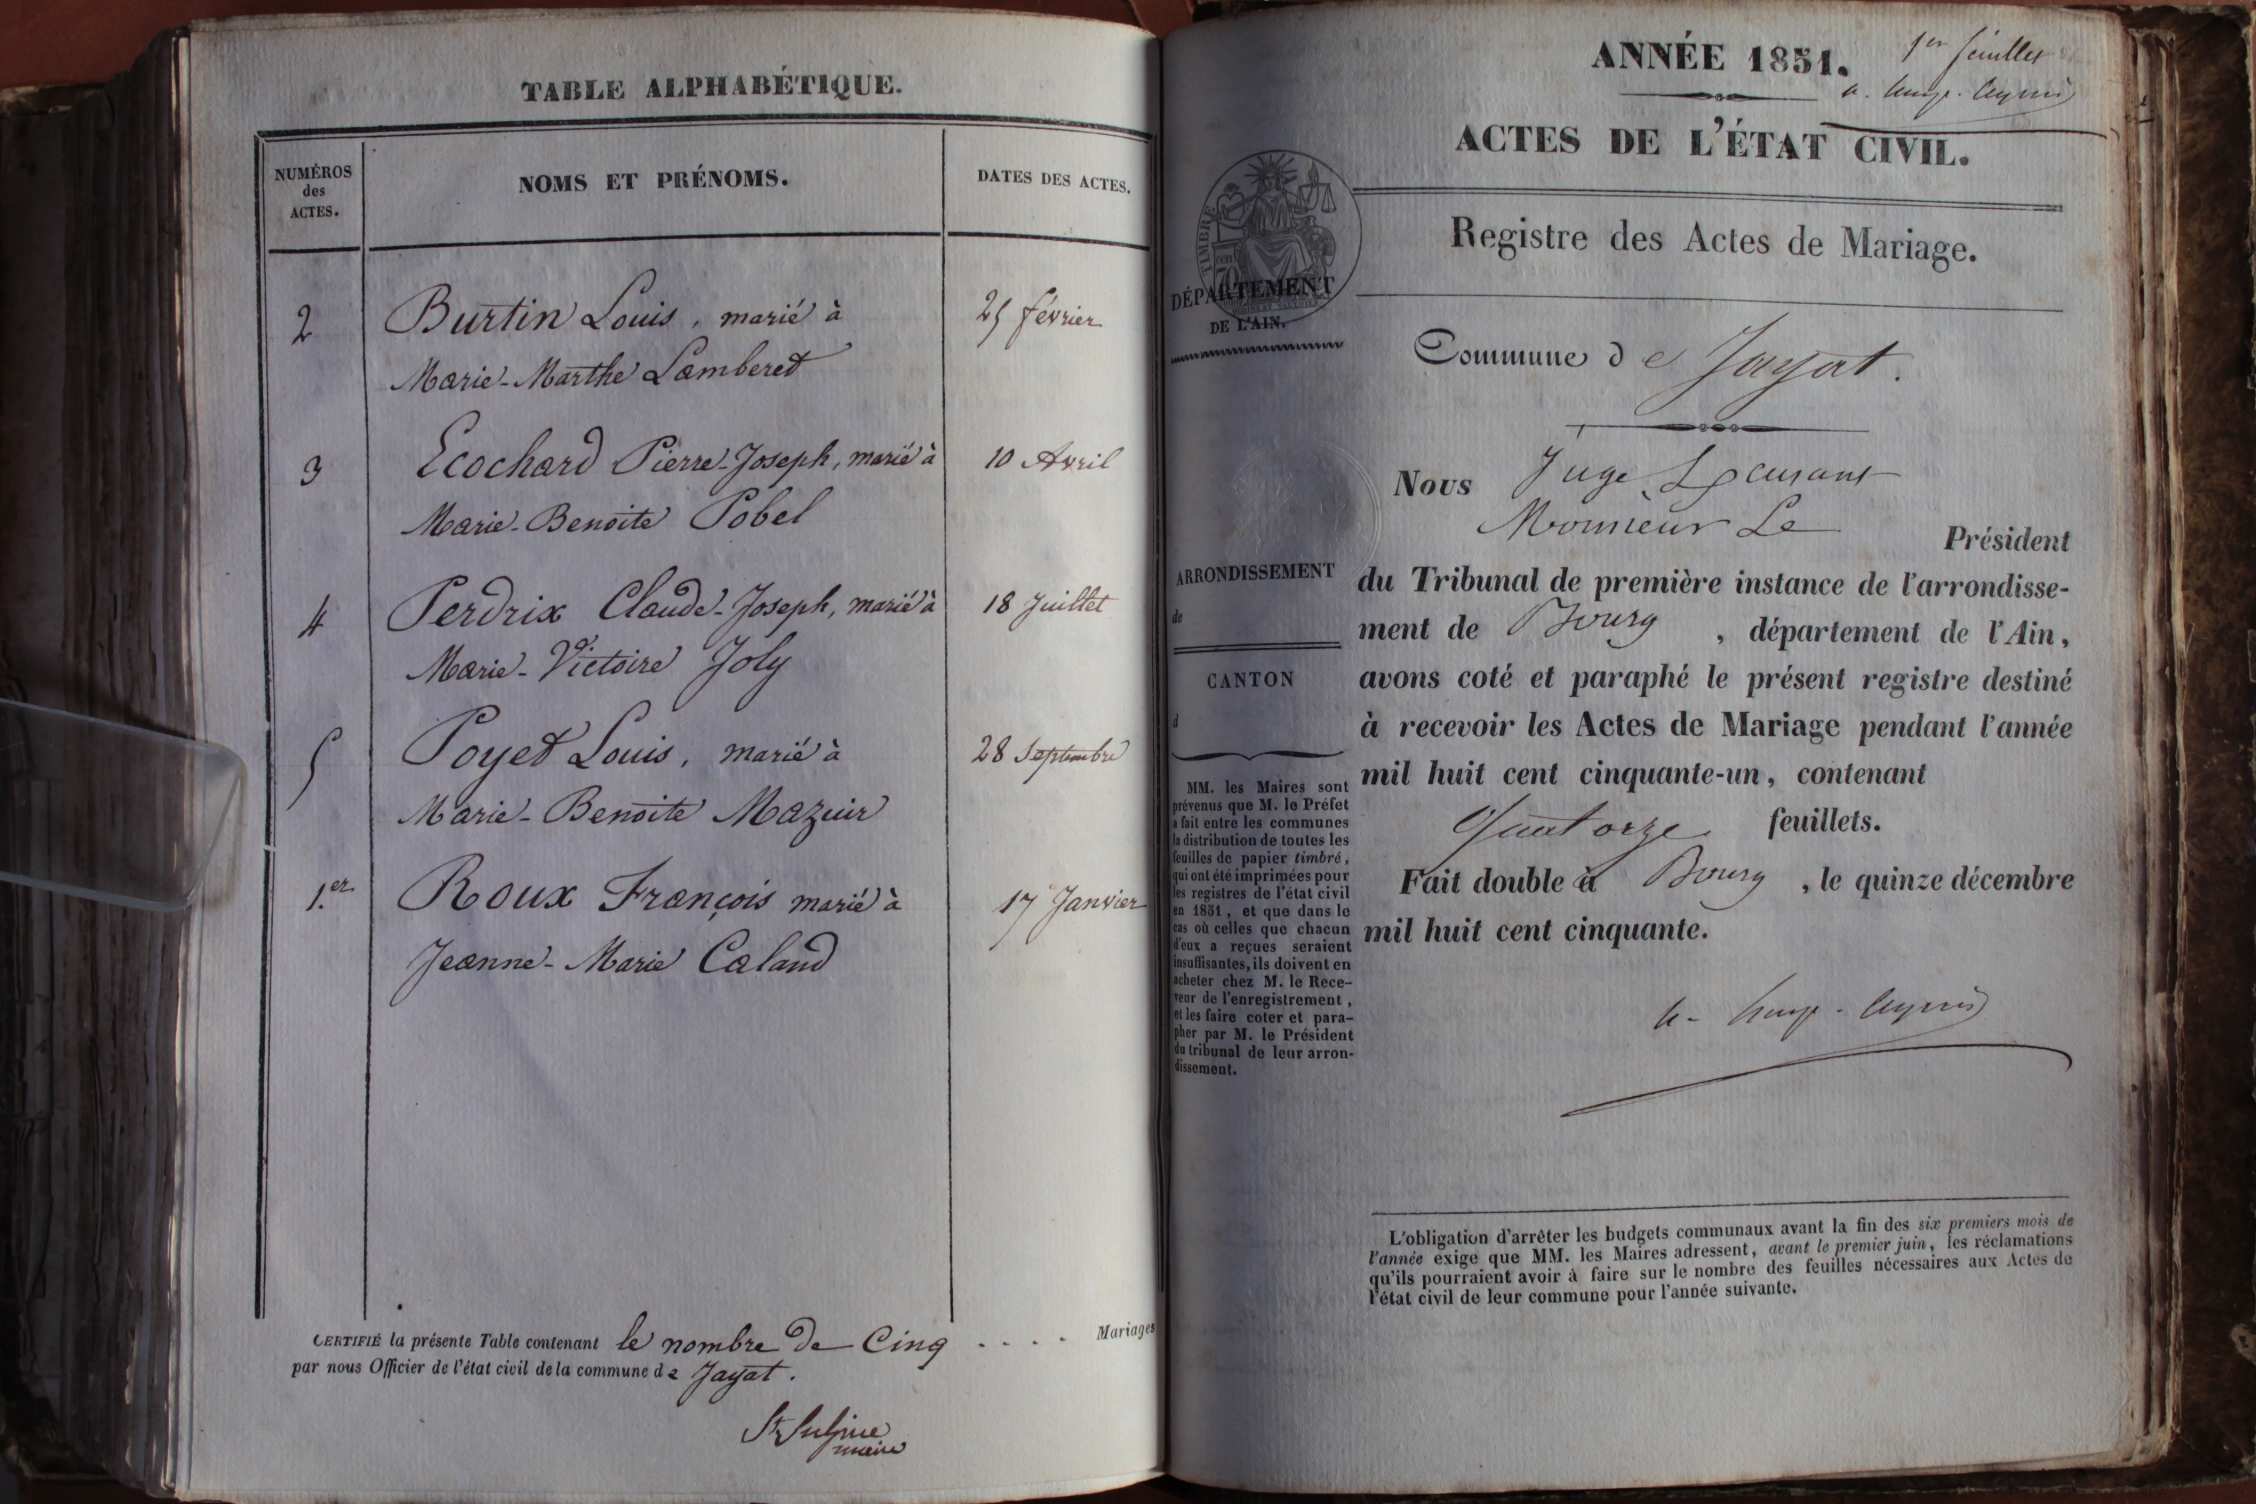 TABLE ALPHABÉTIQUE.
NUMÉROS
des
ACTES.
NOMS ET PRÉNOMS.
DATES DES ACTES.
2 Burtin Louis, marié à 25 février
Marie-Marthe Lamberet
3 Ecochard Pierre-Joseph, marié à 10 Avril
Marie-Benoite Pobel
4 Perdrix Claude-Joseph, marié à 18 Juillet
Marie-Victoire Joly
5 Poyet Louis, marié à 28 Septembre
Marie-Benoite Mazuir
1.er Roux François marié à 17 Janvier
Jeanne-Marie Caland
CERTIFIÉ la présente Table contenant le nombre de Cinq .... Mariages
par nous Officier de l'état civil de la commune de Jayat.
maire
1er feuillet
ANNÉE 1851.
ACTES DE L'ÉTAT CIVIL.
Registre des Actes de Mariage.
TIMBRE
70
DÉPARTEMENT
DE L'AIN.
Commune de Jayat.
Nous Juge
Monsieur Le Président
du Tribunal de première instance de l'arrondisse-
ment de Bourg, département de l'Ain,
avons coté et paraphé le présent registre destiné
à recevoir les Actes de Mariage pendant l'année
mil huit cent cinquante-un, contenant
Quatorze feuillets.
Fait double à Bourg, le quinze décembre
mil huit cent cinquante.
ARRONDISSEMENT
de
CANTON
d
MM. les Maires sont
prévenus que M. le Préfet
a fait entre les communes
la distribution de toutes les
feuilles de papier timbré,
qui ont été imprimées pour
les registres de l'état civil
en 1851, et que dans le
cas où celles que chacun
d'eux a reçues seraient
insuffisantes, ils doivent en
acheter chez M. le Rece-
veur de l'enregistrement,
et les faire coter et para-
pher par M. le Président
du tribunal de leur arron-
dissement.
L'obligation d'arrêter les budgets communaux avant la fin des six premiers mois de
l'année exige que MM. les Maires adressent, avant le premier juin, les réclamations
qu'ils pourraient avoir à faire sur le nombre des feuilles nécessaires aux Actes de
l'état civil de leur commune pour l'année suivante.